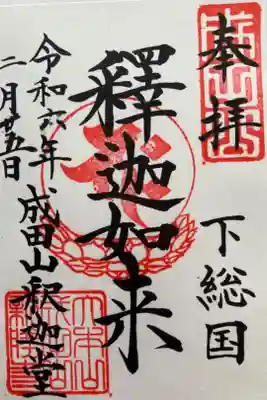 奉拝
下総国
釋迦如来
成田山釈迦堂
令和六年
二月廿五日